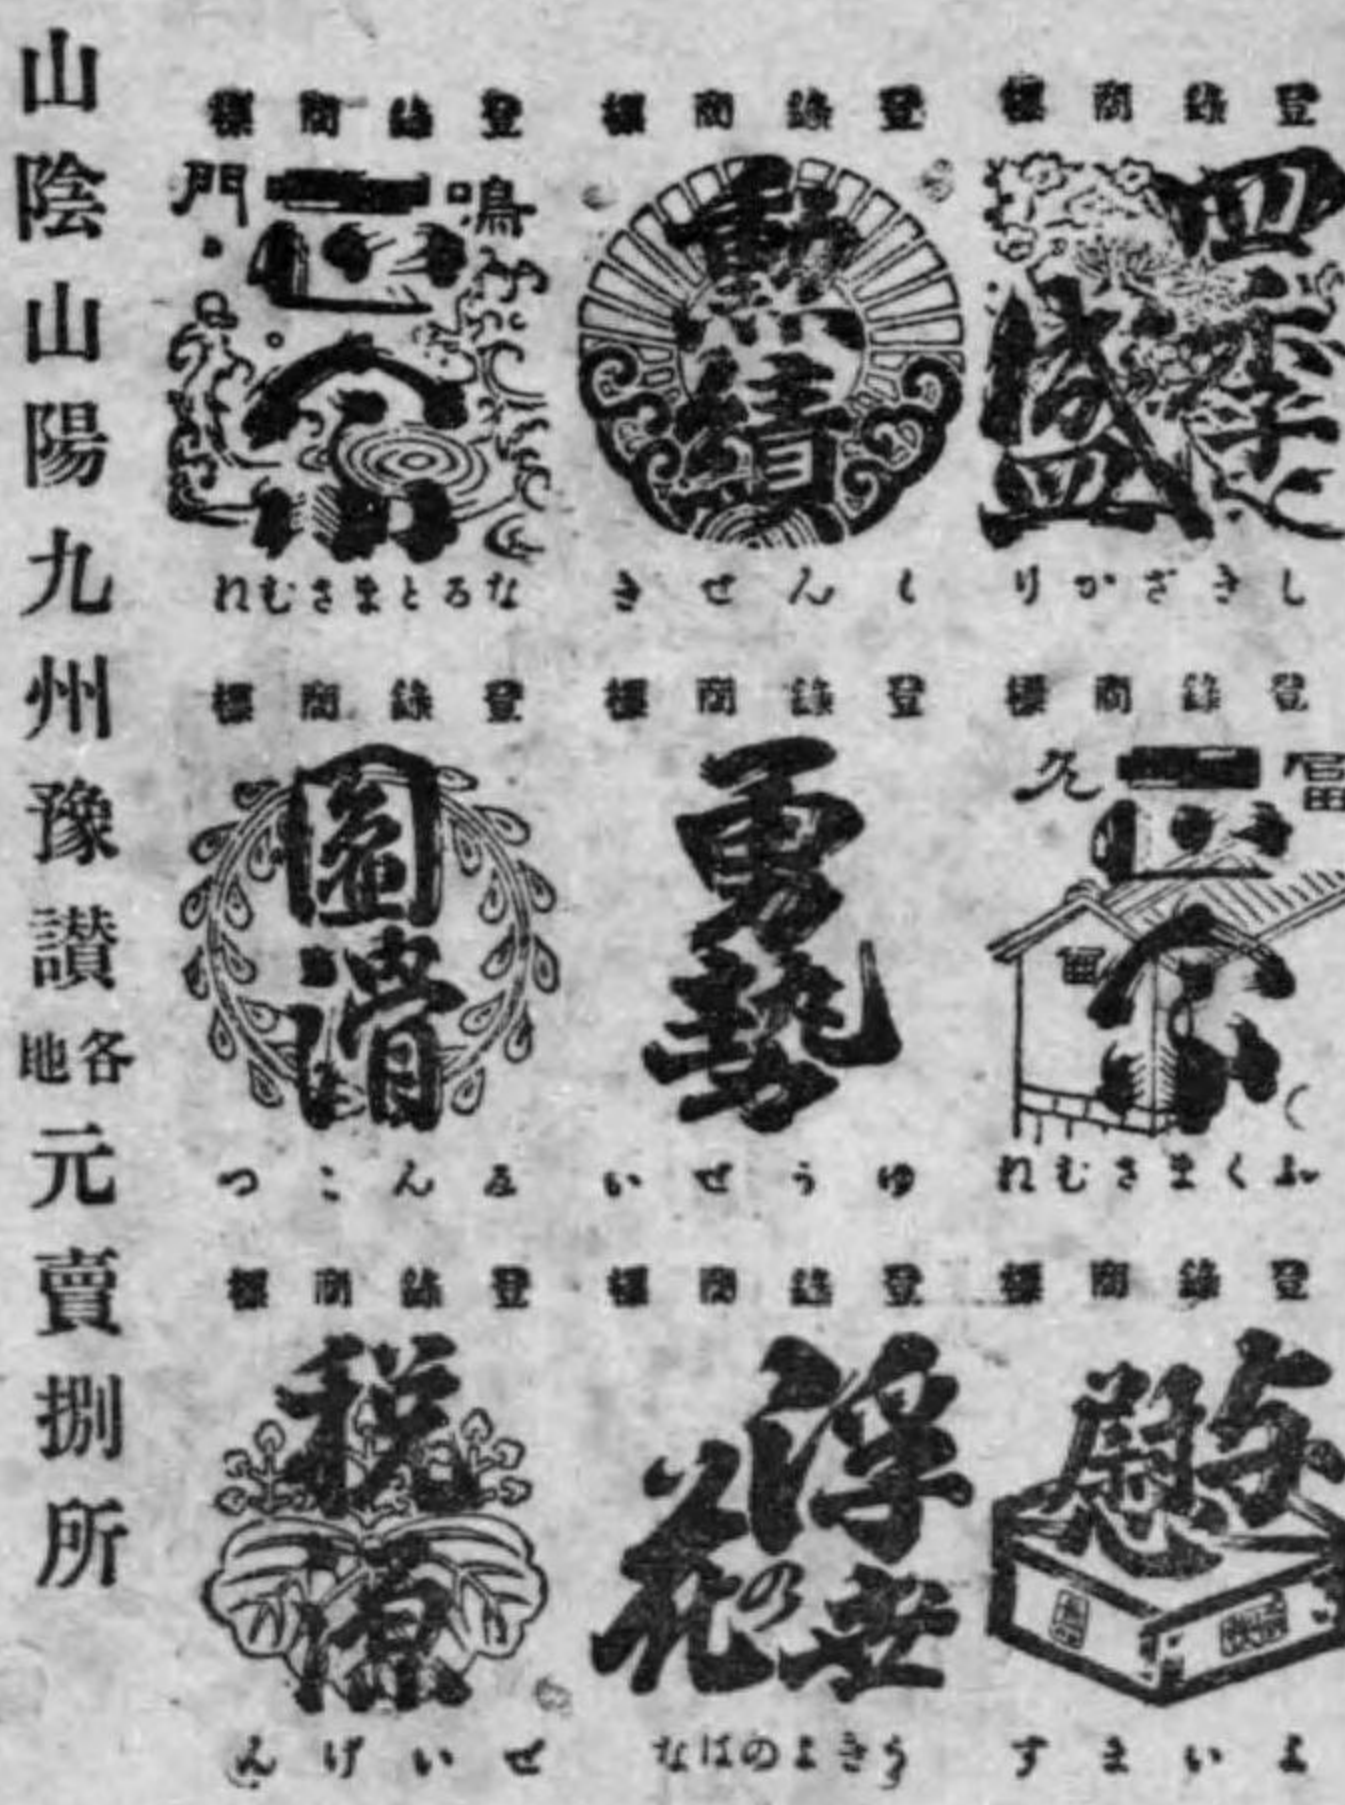 登録商標
四季盛
しきざかり
登録商標
勲績
くんせき
登録商標
鳴門
正宗
なるとまさむね
登録商標
富久
正宗
ふくまさむね
登録商標
勇勢
ゆうせい
登録商標
圓滑
ゑんこつ
登録商標
登録商標
浮世の花
うきよのはな
登録商標
税源
せいげん
山陰山陽九州豫讃各地元賣捌所